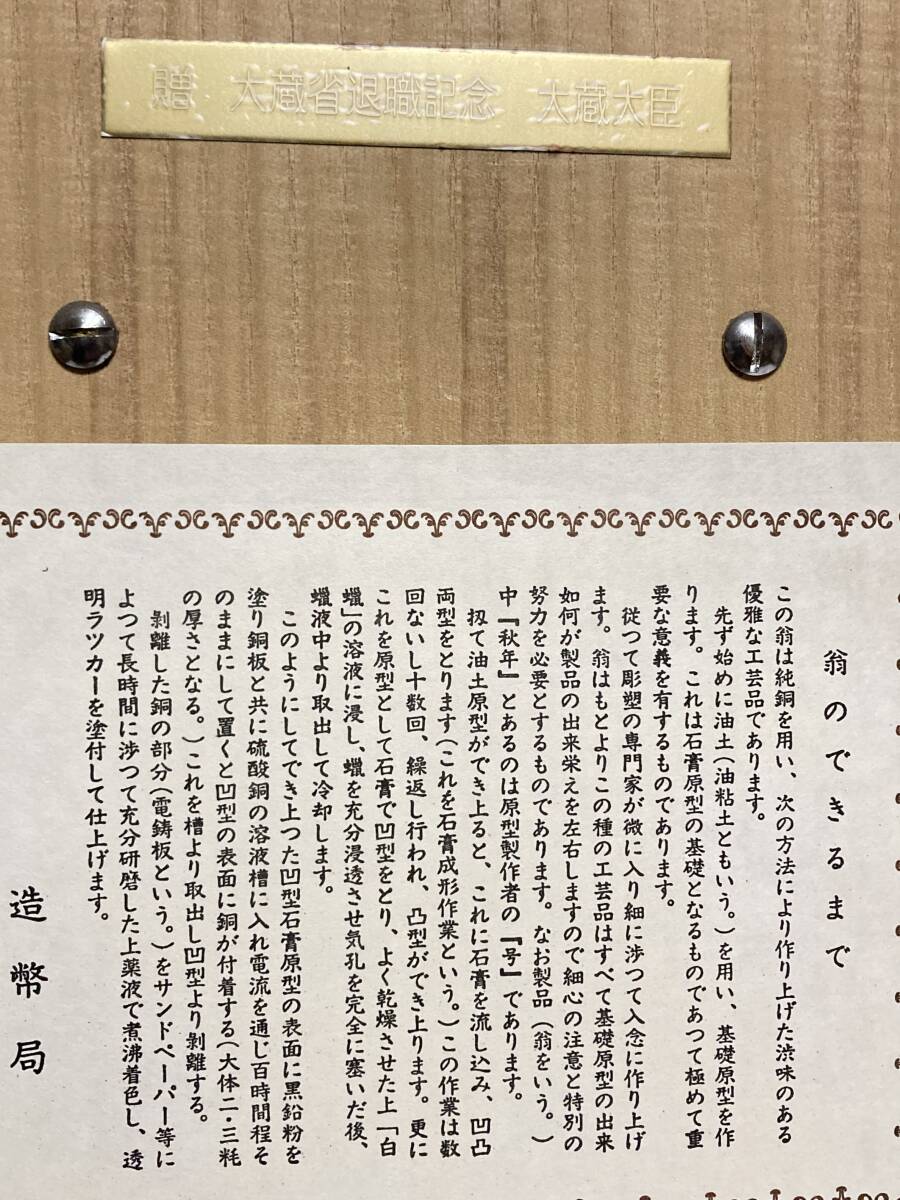 贈　大蔵省退職記念　大蔵大臣
翁のできるまで
この翁は純銅を用い、次の方法により作り上げた渋味のある
優雅な工芸品であります。
先ず始めに油土（油粘土ともいう。）を用い、基礎原型を作
ります。これは石膏原型の基礎となるものであつて極めて重
要な意義を有するものであります。
従つて彫塑の専門家が微に入り細に渉つて入念に作り上げ
ます。翁はもとよりこの種の工芸品はすべて基礎原型の出来
如何が製品の出来栄えを左右しますので細心の注意と特別の
努力を必要とするものであります。なお製品（翁をいう。）
中『秋年』とあるのは原型製作者の『号』であります。
扨て油土原型ができ上ると、これに石膏を流し込み、凹凸
両型をとります（これを石膏成形作業という。）この作業は数
回ないし十数回、繰返し行われ、凸型ができ上ります。更に
これを原型として石膏で凹型をとり、よく乾燥させた上「白
蠟」の溶液に浸し、蠟を充分浸透させ気孔を完全に塞いだ後、
蠟液中より取出して冷却します。
このようにしてでき上つた凹型石膏原型の表面に黒鉛粉を
塗り銅板と共に硫酸銅の溶液槽に入れ電流を通じ百時間程そ
のままにして置くと凹型の表面に銅が付着する（大体二・三粍
の厚さとなる。）これを槽より取出し凹型より剝離する。
剝離した銅の部分（電鋳板という。）をサンドペーパー等に
よつて長時間に渉つて充分研磨した上薬液で煮沸着色し、透
明ラツカーを塗付して仕上げます。
造幣局